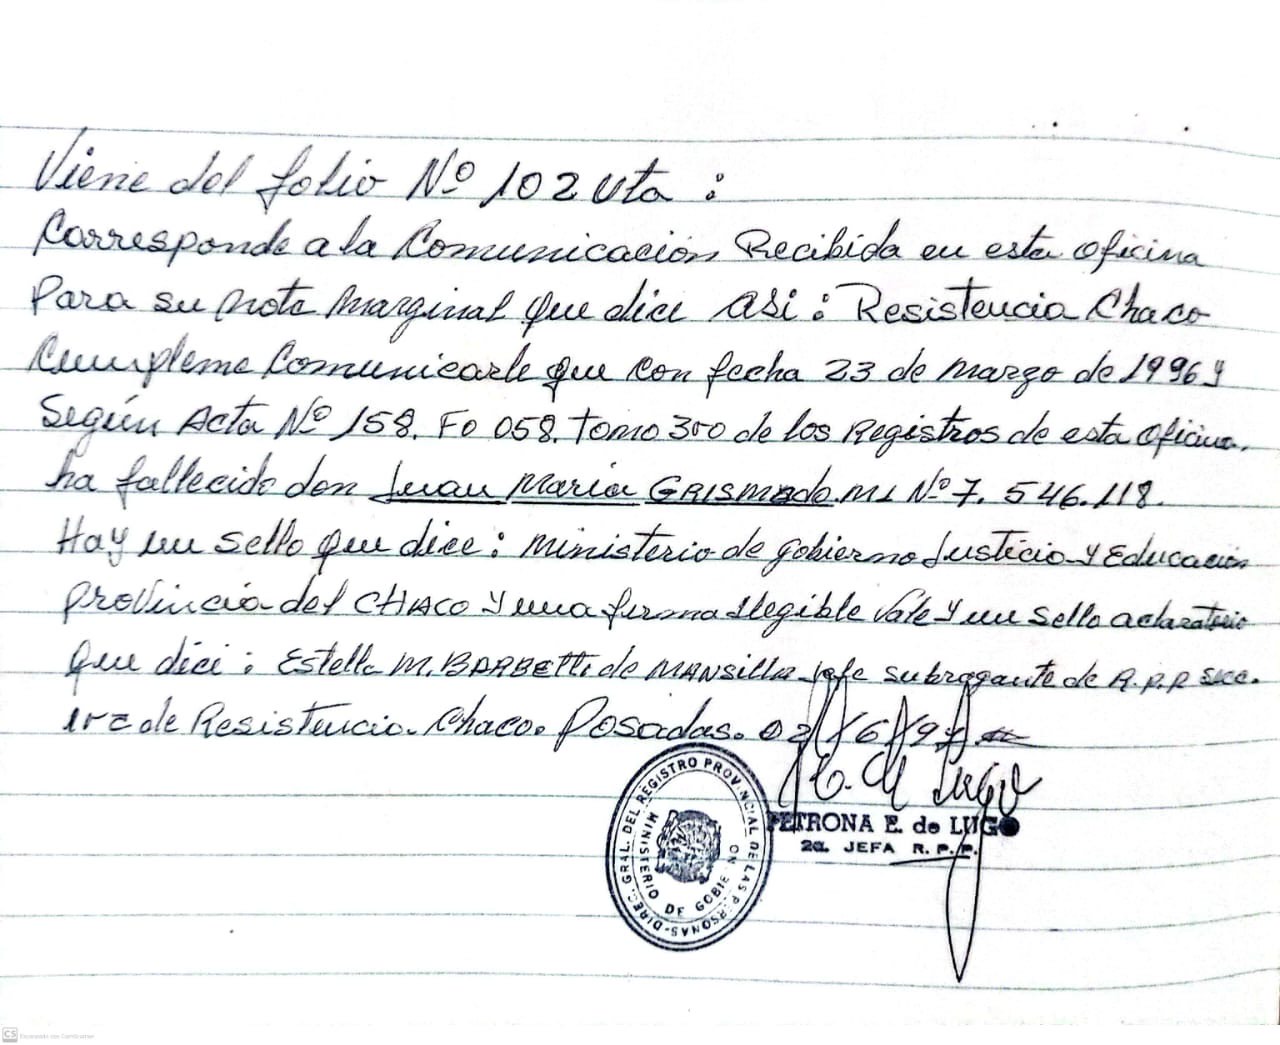 Viene del folio Nº 102 vta :
Corresponde a la Comunicación Recibida en esta oficina
Para su nota marginal que dice asi : Resistencia Chaco
Cumpleme Comunicarle que con fecha 23 de marzo de 1996 y
Según Acta Nº 158. Fo 058. tomo 300 de los Registros de esta oficina.
ha fallecido don Juan María GRISMado. MI Nº 7. 546.118.
Hay un sello que dice : ministerio de gobierno Justicia y Educación
provincia del CHACO y una firma Ilegible vale y un sello aclaratorio
que dice : Estella M. BARBEtti de MANSilla Jefe subrogante de R.p.p secc.
1ra de Resistencia. Chaco. Posadas. 02/6/9
PETRONA E. de LUGO
2a. JEFA R. P. P.
DIREC. GRAL. DEL REGISTRO PROVINCIAL DE LAS PERSONAS
MINISTERIO DE GOBIERNO
CS